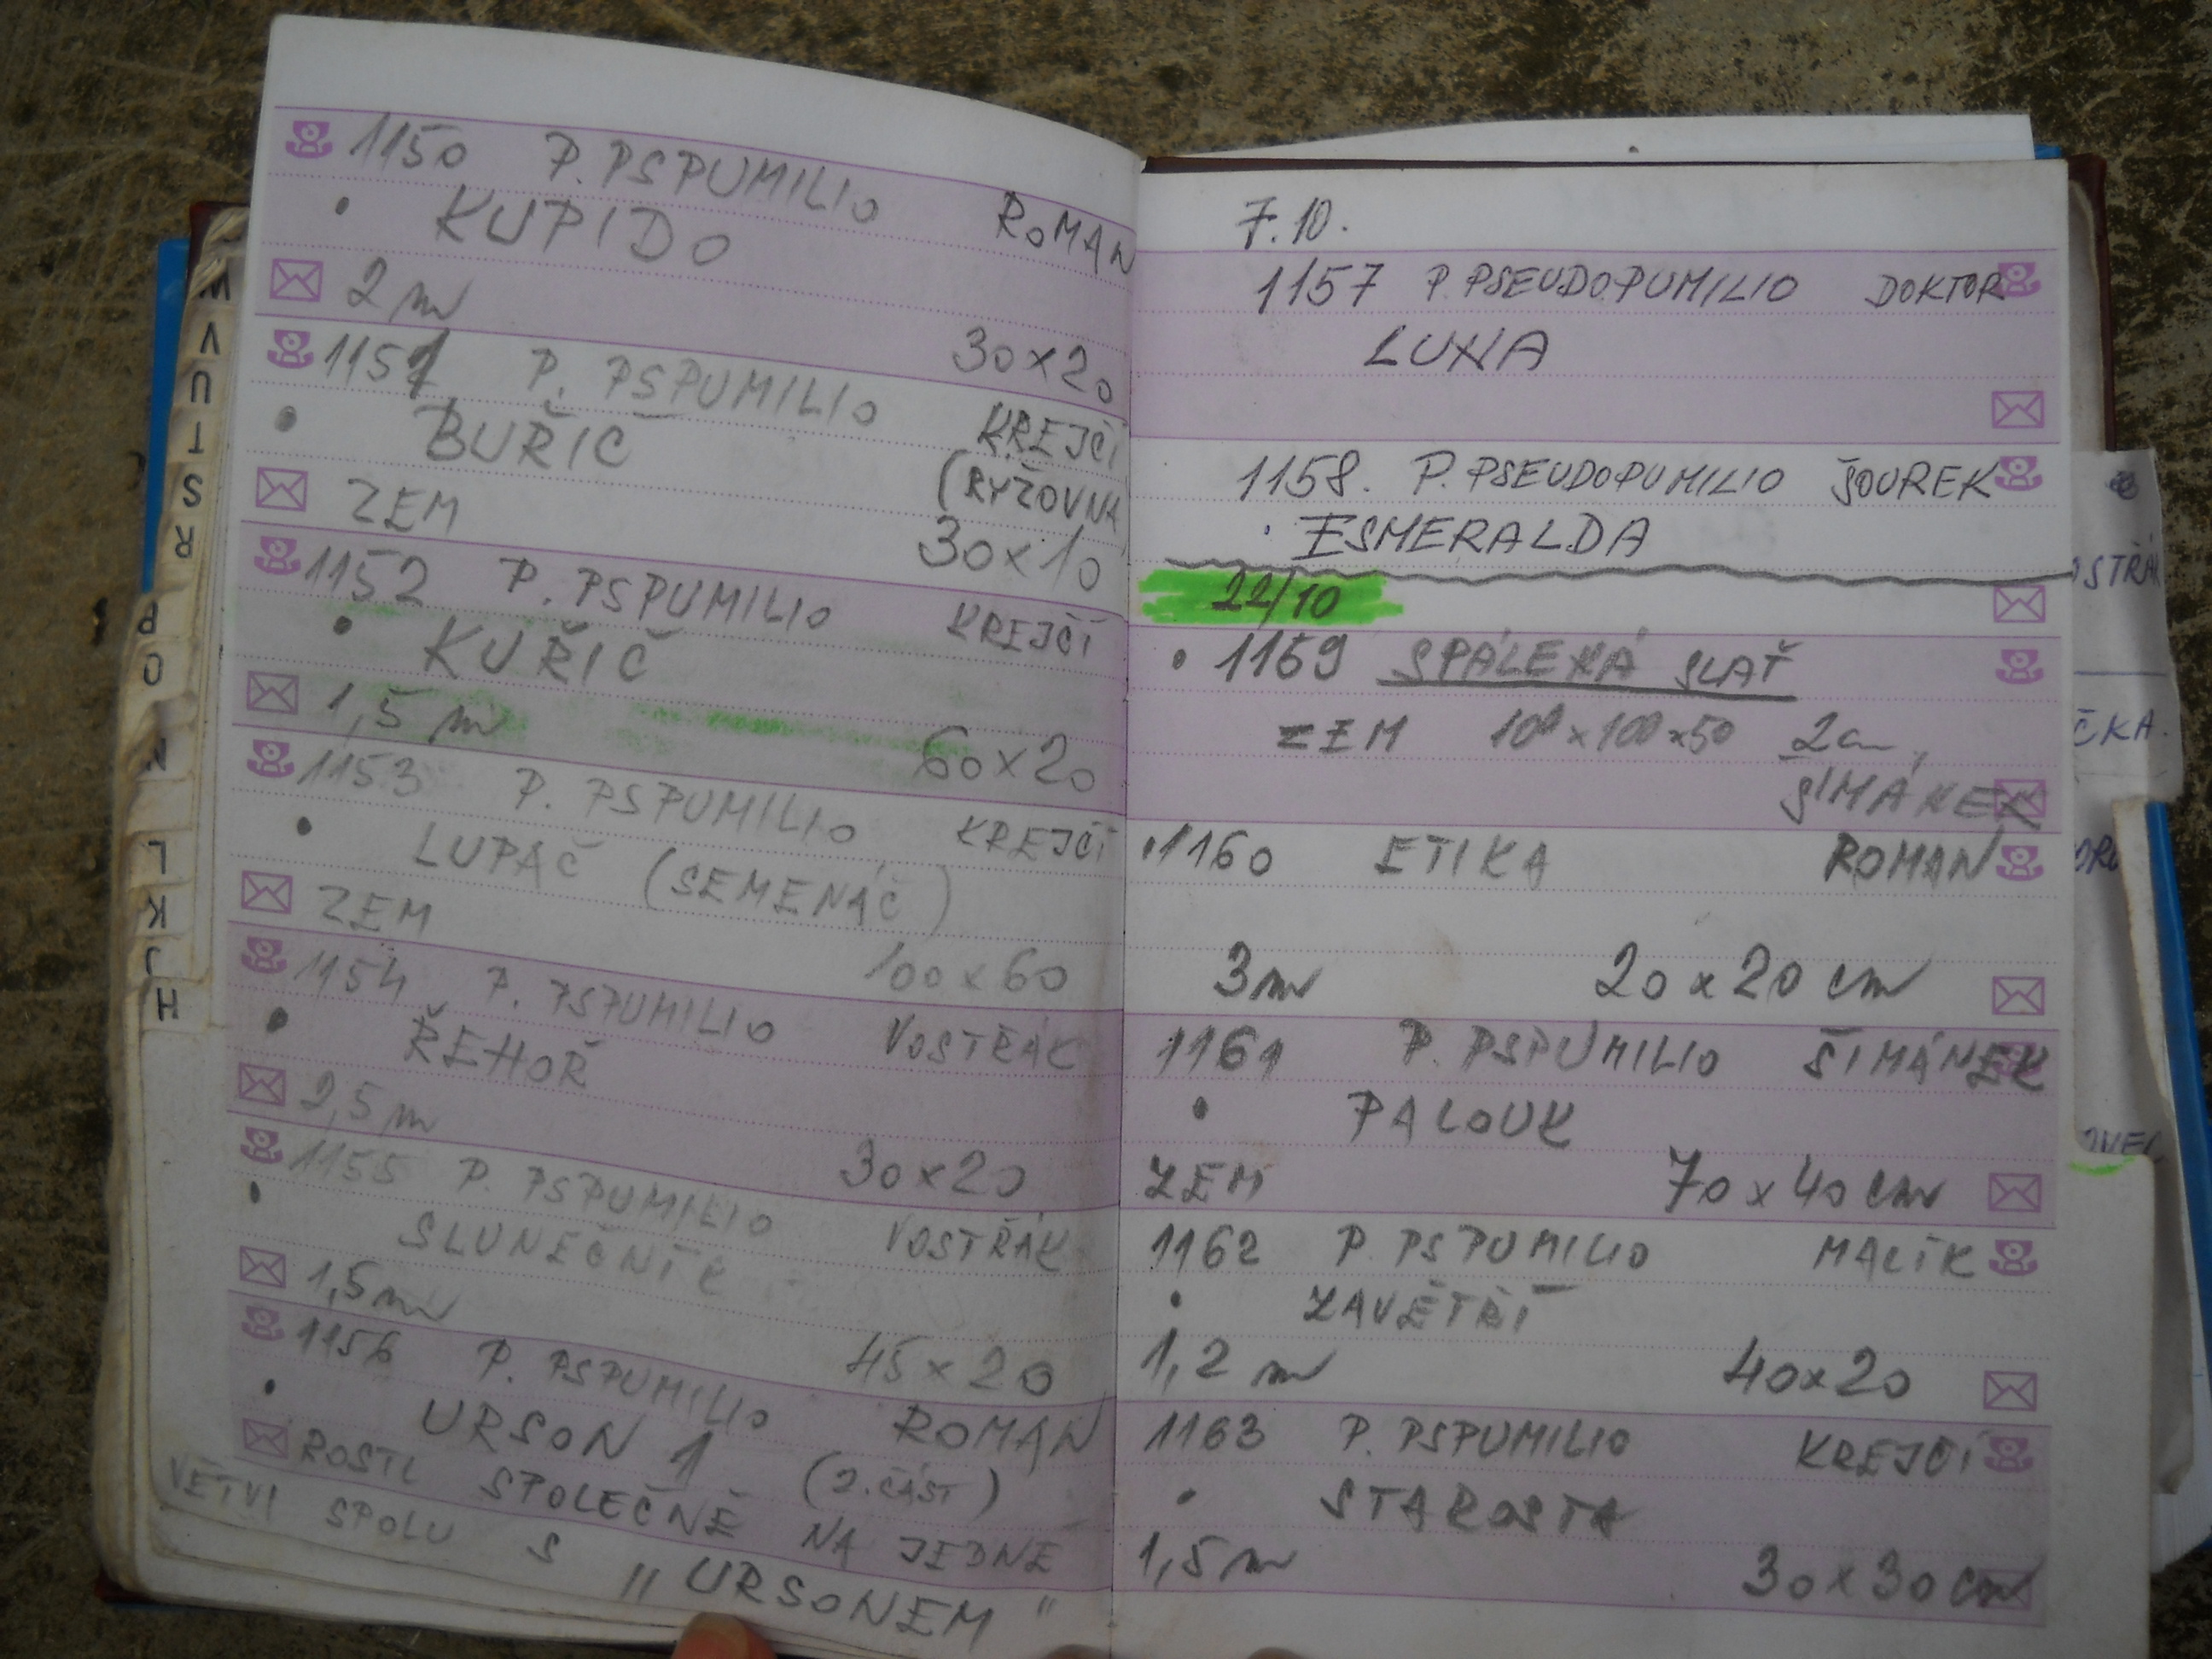 1150 P. PSPUMILIO ROMAN
• KUPIDO
2 m 30x20
1151 P. PSPUMILIO KREJČÍ
• BUŘIČ (RYŽOVNA
ZEM 30x10
1152 P. PSPUMILIO KREJČÍ
• KUŘIČ
1,5 m 60x20
1153 P. PSPUMILIO KREJČÍ
• LUPAČ (SEMENÁČ)
ZEM 100x60
1154 P. PSPUMILIO VOSTŘÁK
• ŘEHOŘ
2,5 m 30x20
1155 P. PSPUMILIO VOSTŘÁK
• SLUNEČNÍK
1,5 m 45x20
1156 P. PSPUMILIO ROMAN
• URSON 1 (2. ČÁST)
ROSTL SPOLEČNĚ NA JEDNÉ
VĚTVI SPOLU S „URSONEM"
7.10.
1157 P. PSEUDOPUMILIO DOKTOR
LUNA
1158. P. PSEUDOPUMILIO ŠOUREK
• ESMERALDA
22/10
• 1159 SPÁLENÁ SLAŤ
ZEM 100x100x50 2cm,
ŠIMÁNEK
• 1160 ETIKA ROMAN
3m 20x20 cm
1161 P. PSPUMILIO ŠIMÁNEK
• PALOUK
ZEM 70x40 cm
1162 P. PSPUMILIO MALÍK
• ZÁVĚTŘÍ
1,2 m 40x20
1163 P. PSPUMILIO KREJČÍ
• STAROSTA
1,5 m 30x30 cm
W
V
U
T
S
R
P
O
N
L
K
J
H